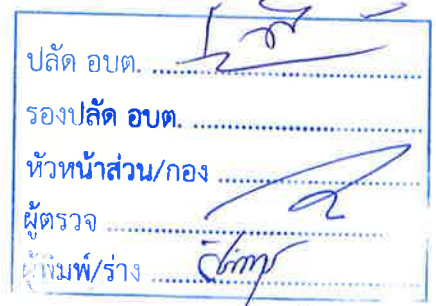 ปลัด อบต. ....................
รองปลัด อบต. ....................
หัวหน้าส่วน/กอง ....................
ผู้ตรวจ ....................
ผู้พิมพ์/ร่าง ....................